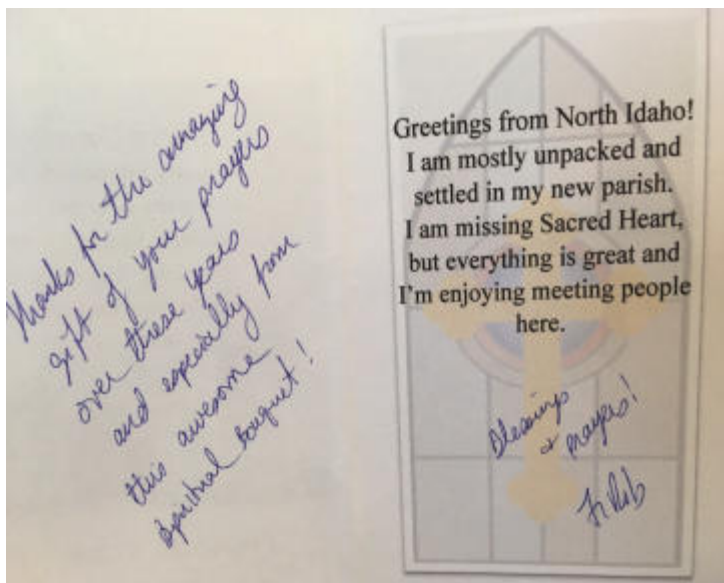 Thanks for the amazing
gift of your prayers
over these years
and especially from
this awesome
spiritual bouquet!
Greetings from North Idaho!
I am mostly unpacked and
settled in my new parish.
I am missing Sacred Heart,
but everything is great and
I'm enjoying meeting people
here.
Blessings
& prayers!
Fr Rob